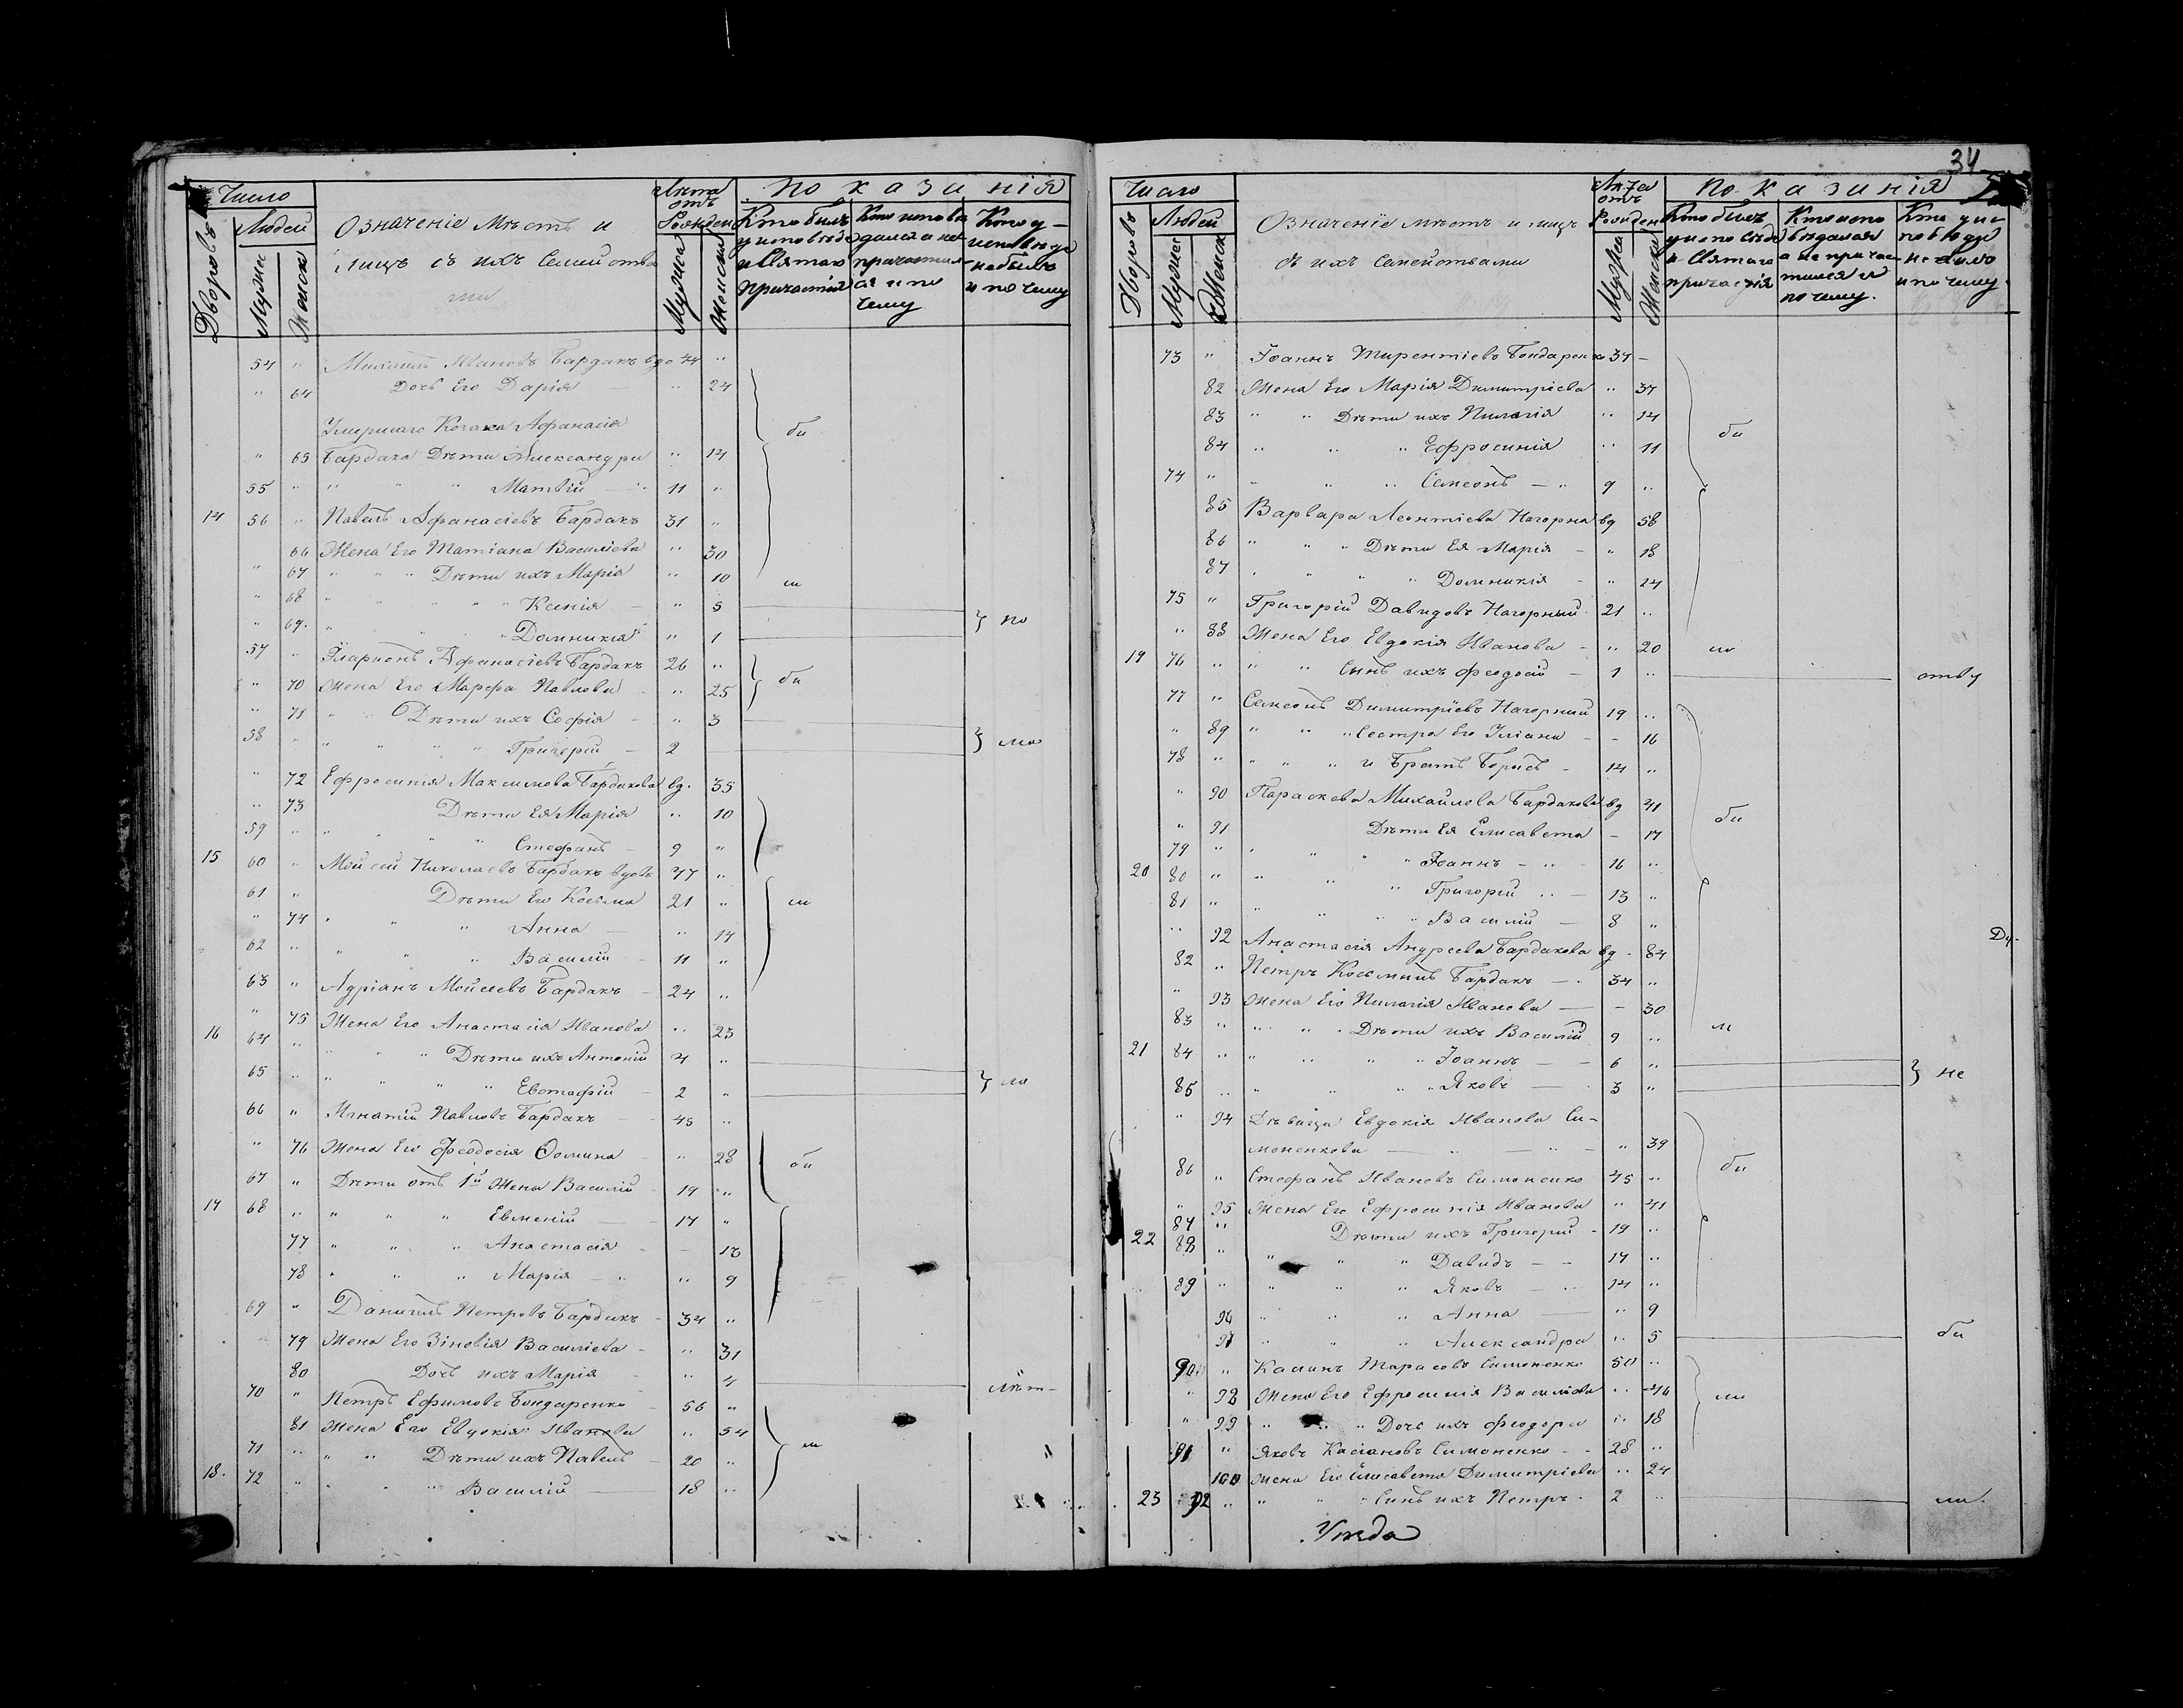 Число
Людей
Дворовъ
Мужеск
Женск
Означеніе Мѣстъ и
лицъ съ ихъ Семейства
ми
Лѣта
отъ
Рожден
Мужеск
Женска
показанія
Кто былъ
у исповѣди
и Святаго
Причастія
Кто испові
дался а не
причастил
ся и по
чему
Кто у
исповѣди
не былъ
и по чему
54 " Михаилъ Ивановъ Бардакъ вдо 44 "
" 64 Дочь Его Дарія — " 24
Умершаго Козака Афанасія
бы
" 65 Бардака Дѣти Александра " 14
55 " " " " Матвій — 11 "
14 56 " Павелъ Афанасіевъ Бардакъ 31 "
66 Жена Его Татіана Василіева " 30
" 67 " " " Дѣти ихъ Марія " 10 ли
" 68 " " " " " Ксенія — " 5
" 69. " " " " Домникія " 1
по
57 " Иларіонъ Афанасіевъ Бардакъ 26 "
" 70 Жена Его Марфа Павлова — " 25 бы
" 71 " " Дѣти ихъ Софія — " 3
58 " " " " " Григорій — 2
ма
" 72 Ефросинія Максимова Бардакова вд. 35
" 73 Дѣти Ея Марія " 10
59 " " " " " Стефанъ — 9 "
15 60 " Мойсей Николаевъ Бардакъ вдовъ 47 "
61 " Дѣти Его Косьма 21 " ли
" 74 " " " Анна — " 17
62 " " " " Василій — 11 "
63 " Адріанъ Мойсеевъ Бардакъ — 24 "
" 75 Жена Его Анастасія Иванова " 23
16 64 " " " " Дѣти ихъ Антоній 4 "
65 " " " " " Евстафій — 2 "
ло
66 " Игнатій Павловъ Бардакъ — 45 "
" 76 Жена Его Феодосія Фомина — " 28 бы
67 " Дѣти отъ 1й Жены Василій 19 "
17 68 " " " " Евменій — 17 "
77 " " " Анастасія — 12
78 " " " Марія — " " 9
69 " Даніилъ Петровъ Бардакъ — 34 "
79 Жена Его Зіновія Василіева — " 31
80 Дочь ихъ Марія — " 4
лѣт-
70 " Петръ Ефимовъ Бондаренко 56 "
81 Жена Его Евдокія Иванова " 54
71 " " " Дѣти ихъ Павелъ — 20 " ли
18. 72 " " " " Василій — 18 "
34
Число
Людей
Дворовъ
Мужес
Женск
Означеніе мѣстъ и лицъ
съ ихъ Семействами
Лѣта
отъ
Рожден
Мужеск
Женска
показанія
Кто былъ
у исповѣди
и Святаго
причастія
Кто испо
вѣдался
а не причас
тился и
по чему.
Кто у ис
повѣди
не было
и по чему.
73 " Іоаннъ Тирентіевъ Бондаренко 34 —
82 Жена Его Марія Димитріева " 37
83 " " Дѣти ихъ Пилагія " 14
84 " " " Ефросинія " 11 бы
74 " " " " Самсонъ — " 9 "
85 Варвара Леонтіева Нагорна вд 58
86 " " " Дѣти Ея Марія — " 18
87 " " " " Домникія — " 24
75 " Григорій Давидовъ Нагорный 21 "
" 88 Жена Его Евдокія Иванова — " 20 ли
19 76 " " " Сынъ ихъ Феодосій — 1 "
77 " Самсонъ Димитріевъ Нагорный 19 "
" 89 " " " Сестра Его Уліана — — 16
78 " " " " и Братъ Борисъ — 14 "
" 90 Параскева Михайлова Бардакова вд 41
" 91 Дѣти Ея Елисавета — 17 бы
79 " " " " " Іоаннъ — " 16 "
20 80 " " " " Григорій " — 13 "
81 " " " " " Василій — 8 "
" 92 Анастасія Андреева Бардакова вд. 84
82 " Петръ Косьминъ Бардакъ — 34 "
" 93 Жена Его Пилагія Иванова — — 30
83 " " " " Дѣти ихъ Василій 9 "
21 84 " " " " " Іоаннъ — — 6 "
85 " " " " Яковъ — — 3 "
не
" 94 Дѣвица Евдокія Иванова Си-
моненкова — " — " — " 39
86 " Стефанъ Ивановъ Симоненко 45 " бы
" 95 Жена Его Ефросинія Иванова " 41
87 " Дѣти ихъ Григорій — 19 "
22 88 " " " " Давидъ — — 17 "
89 " " " " Яковъ — 14 "
96 " " " Анна — " 9
97 " " " Александра " 5 бы
90 " Касіанъ Тарасовъ Симоненко 50 "
" 98 Жена Его Ефросинія Василіева " 46 ли
" 99 " " " Дочь ихъ Феодора " 18
91 " Яковъ Касіановъ Симоненко — 28 "
100 Жена Его Елисавета Димитріева " 24
23 92 " " " Сынъ ихъ Петръ — 2 " ли.